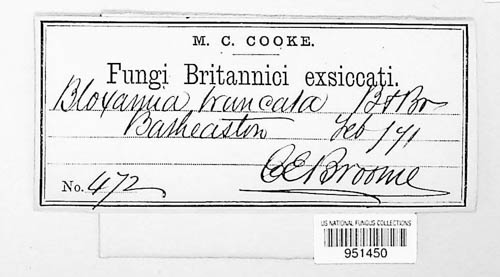 M. C. COOKE.
Fungi Britannici exsiccati.
Bloxamia truncata B & Br
Batheaston Feb /71
No. 472 CEBroome
US NATIONAL FUNGUS COLLECTIONS
951450